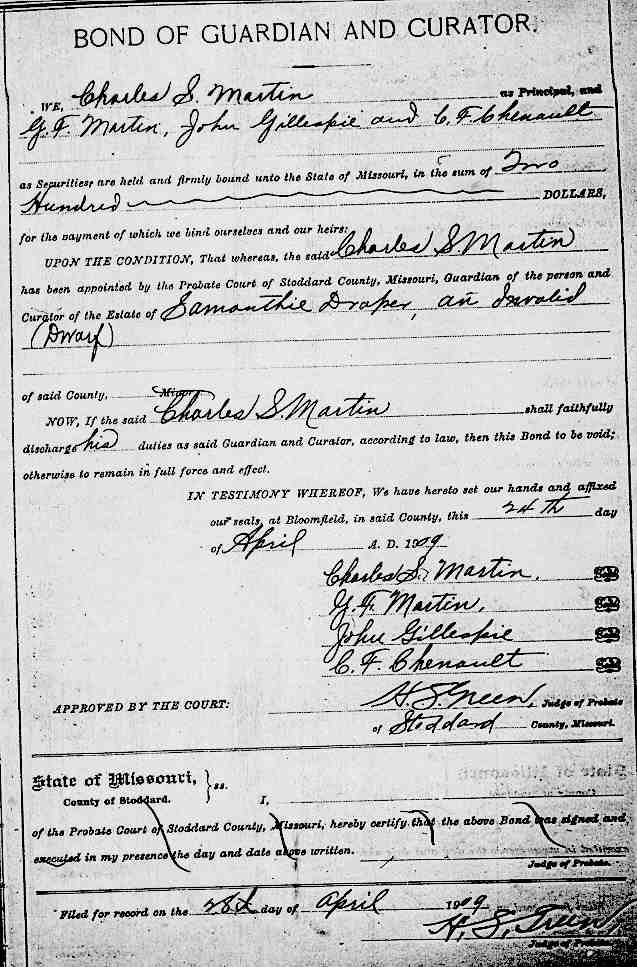 BOND OF GUARDIAN AND CURATOR.
WE, Charles S. Martin as Principal, and
G. F. Martin, John Gillespie and C. F. Chenault
as Securities, are held and firmly bound unto the State of Missouri, in the sum of Two
Hundred DOLLARS,
for the payment of which we bind ourselves and our heirs:
UPON THE CONDITION, That whereas, the said Charles S. Martin
has been appointed by the Probate Court of Stoddard County, Missouri, Guardian of the person and
Curator of the Estate of Samanthie Draper, an Invalid
(Dwarf)
of said County, Minor
NOW, If the said Charles S. Martin shall faithfully
discharge his duties as said Guardian and Curator, according to law, then this Bond to be void;
otherwise to remain in full force and effect.
IN TESTIMONY WHEREOF, We have hereto set our hands and affixed
our seals, at Bloomfield, in said County, this 24th day
of April A. D. 1909
Charles S. Martin.
G. F. Martin.
John Gillespie
C. F. Chenault
APPROVED BY THE COURT: H. S. Green, Judge of Probate
of Stoddard County, Missouri.
State of Missouri, } ss.
County of Stoddard. I,
of the Probate Court of Stoddard County, Missouri, hereby certify that the above Bond was signed and
executed in my presence the day and date above written.
Judge of Probate.
Filed for record on the 28th day of April 1909
H. S. Green
Judge of Probate.